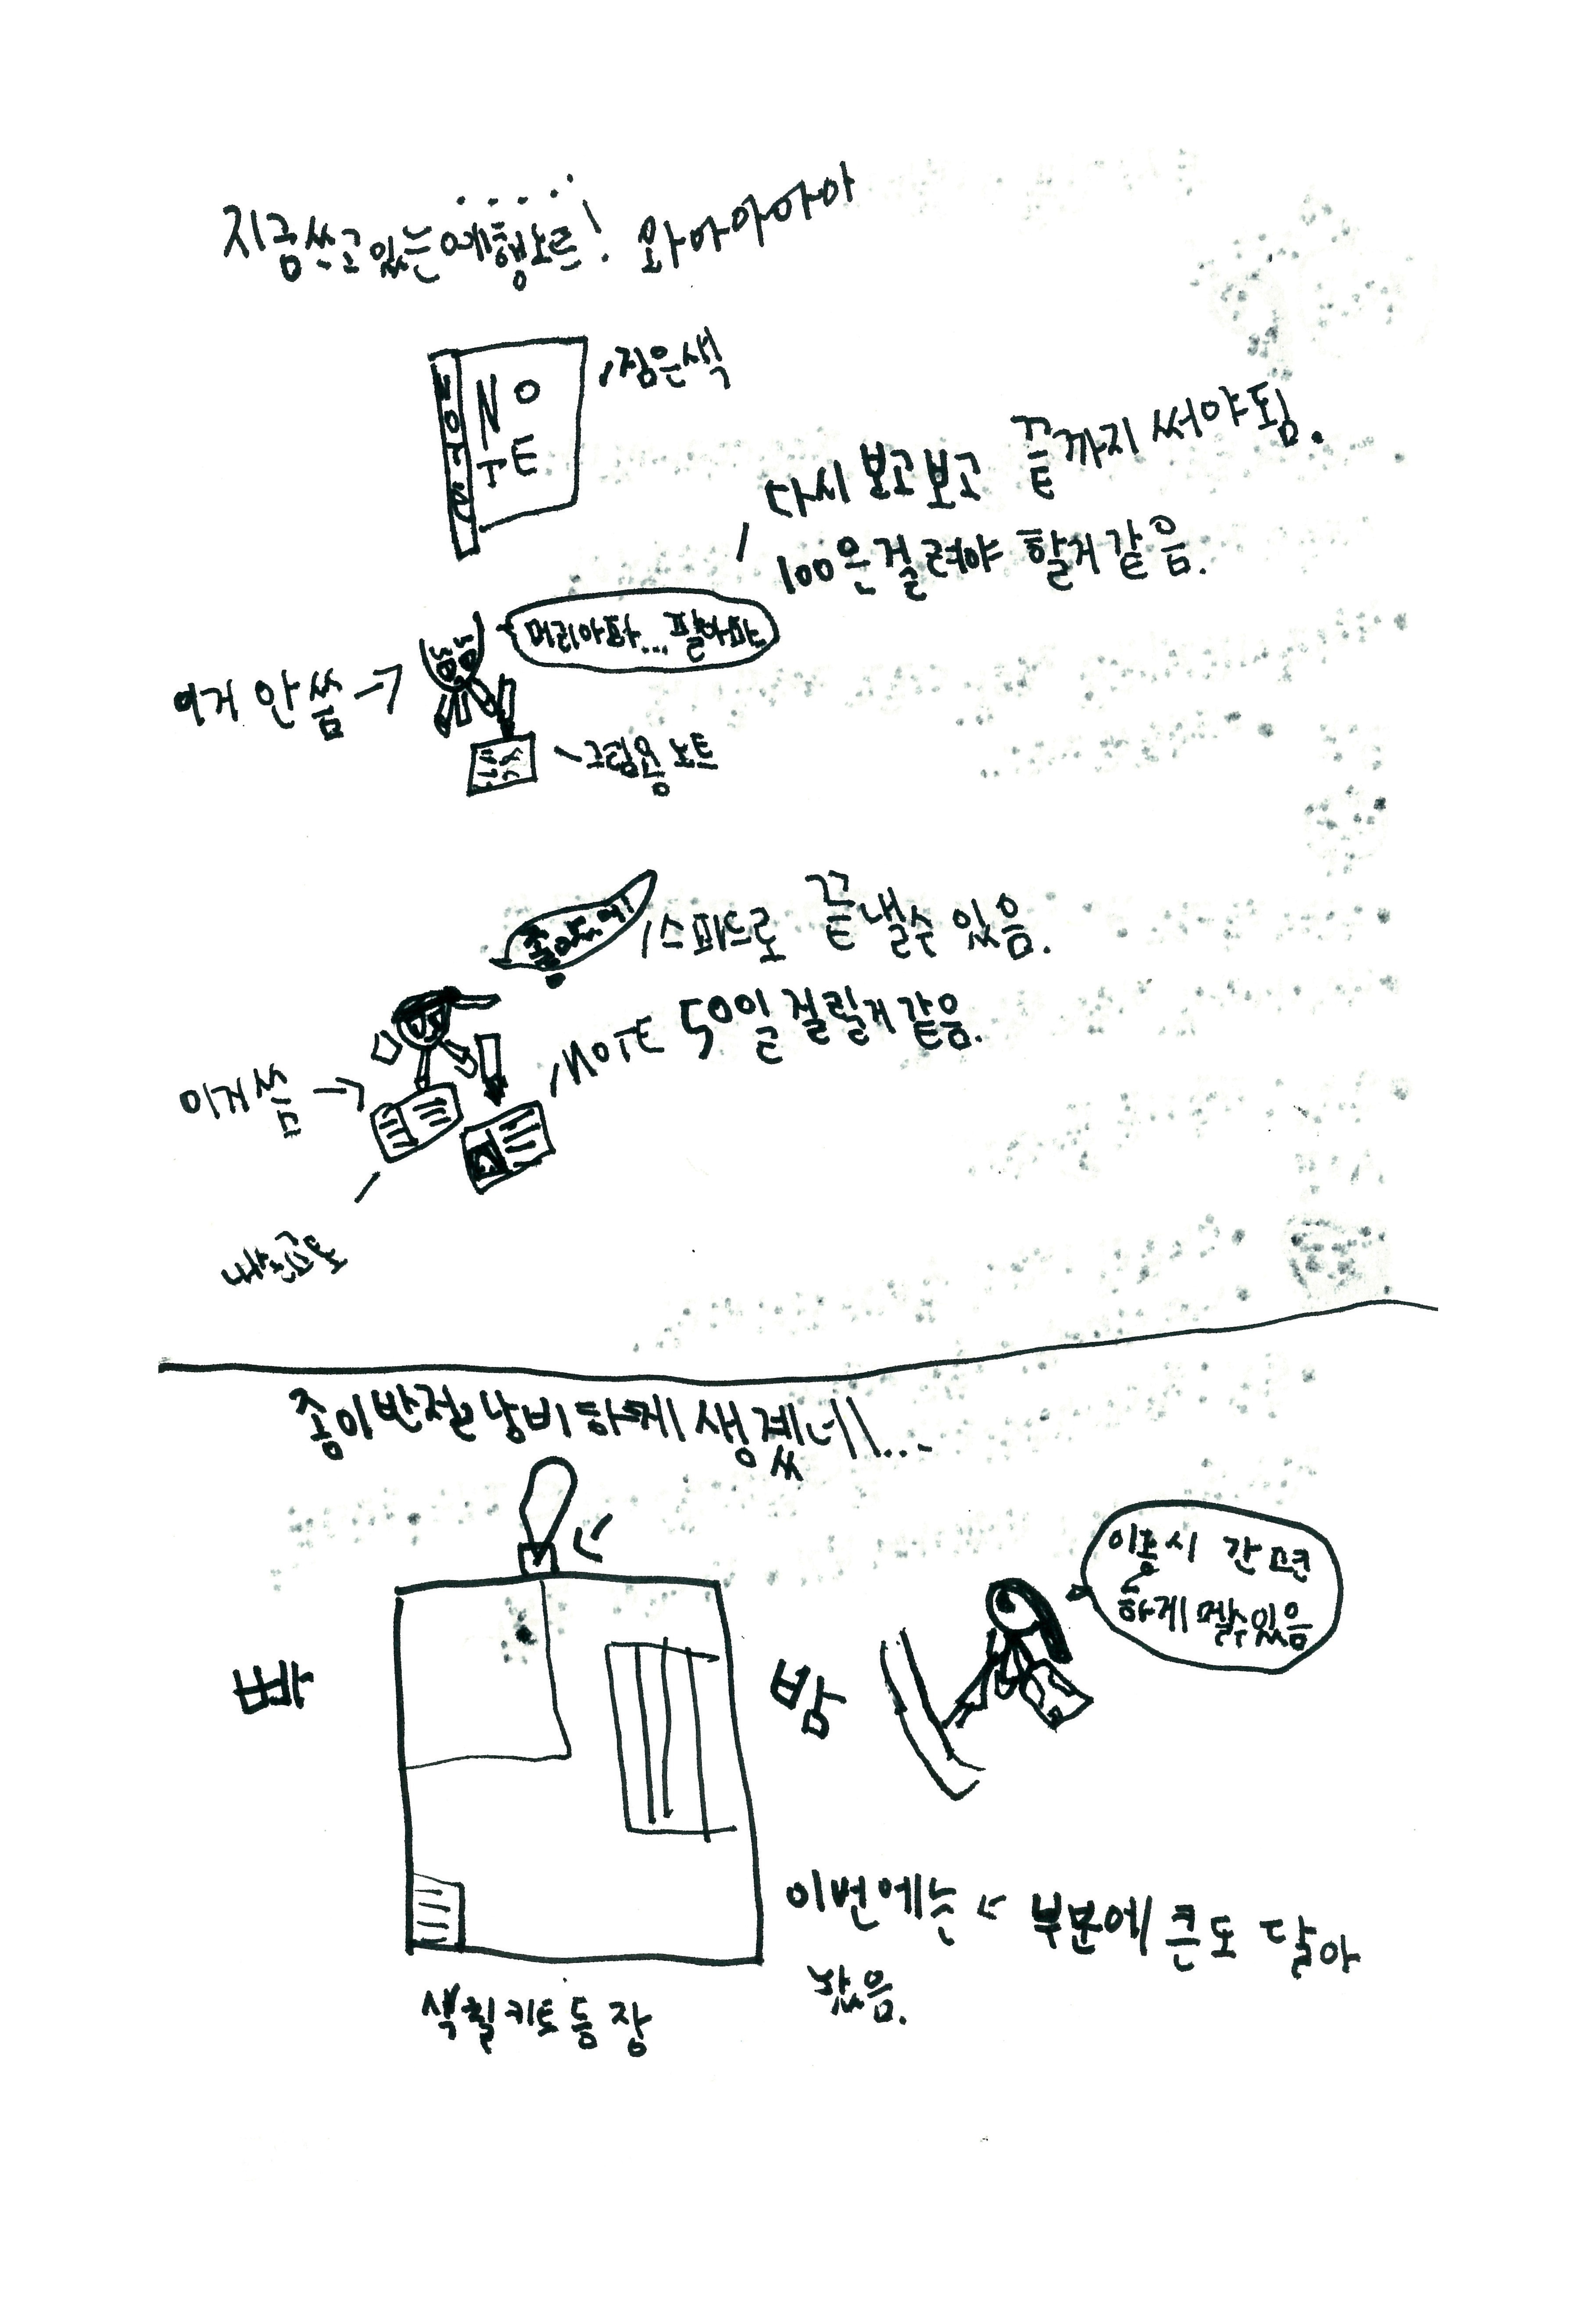 지금쓰고있는여행노트! 와아아아아
NOTE
NO
TE
검은색
다시 보고보고 끝까지 써야됨.
100은걸려야 할거같음.
머리아파... 팔아파..
이거 안씀→
그림용노트
좋아
스피드로 끝낼수 있음.
NOTE 50일걸릴거같음.
이거씀→
종이반절낭비하게생겼네...
이용시 간편
하게 멜수있음
빠
밤
이번에는 ← 부분에 큰도 달아
놨음.
색칠키트등장